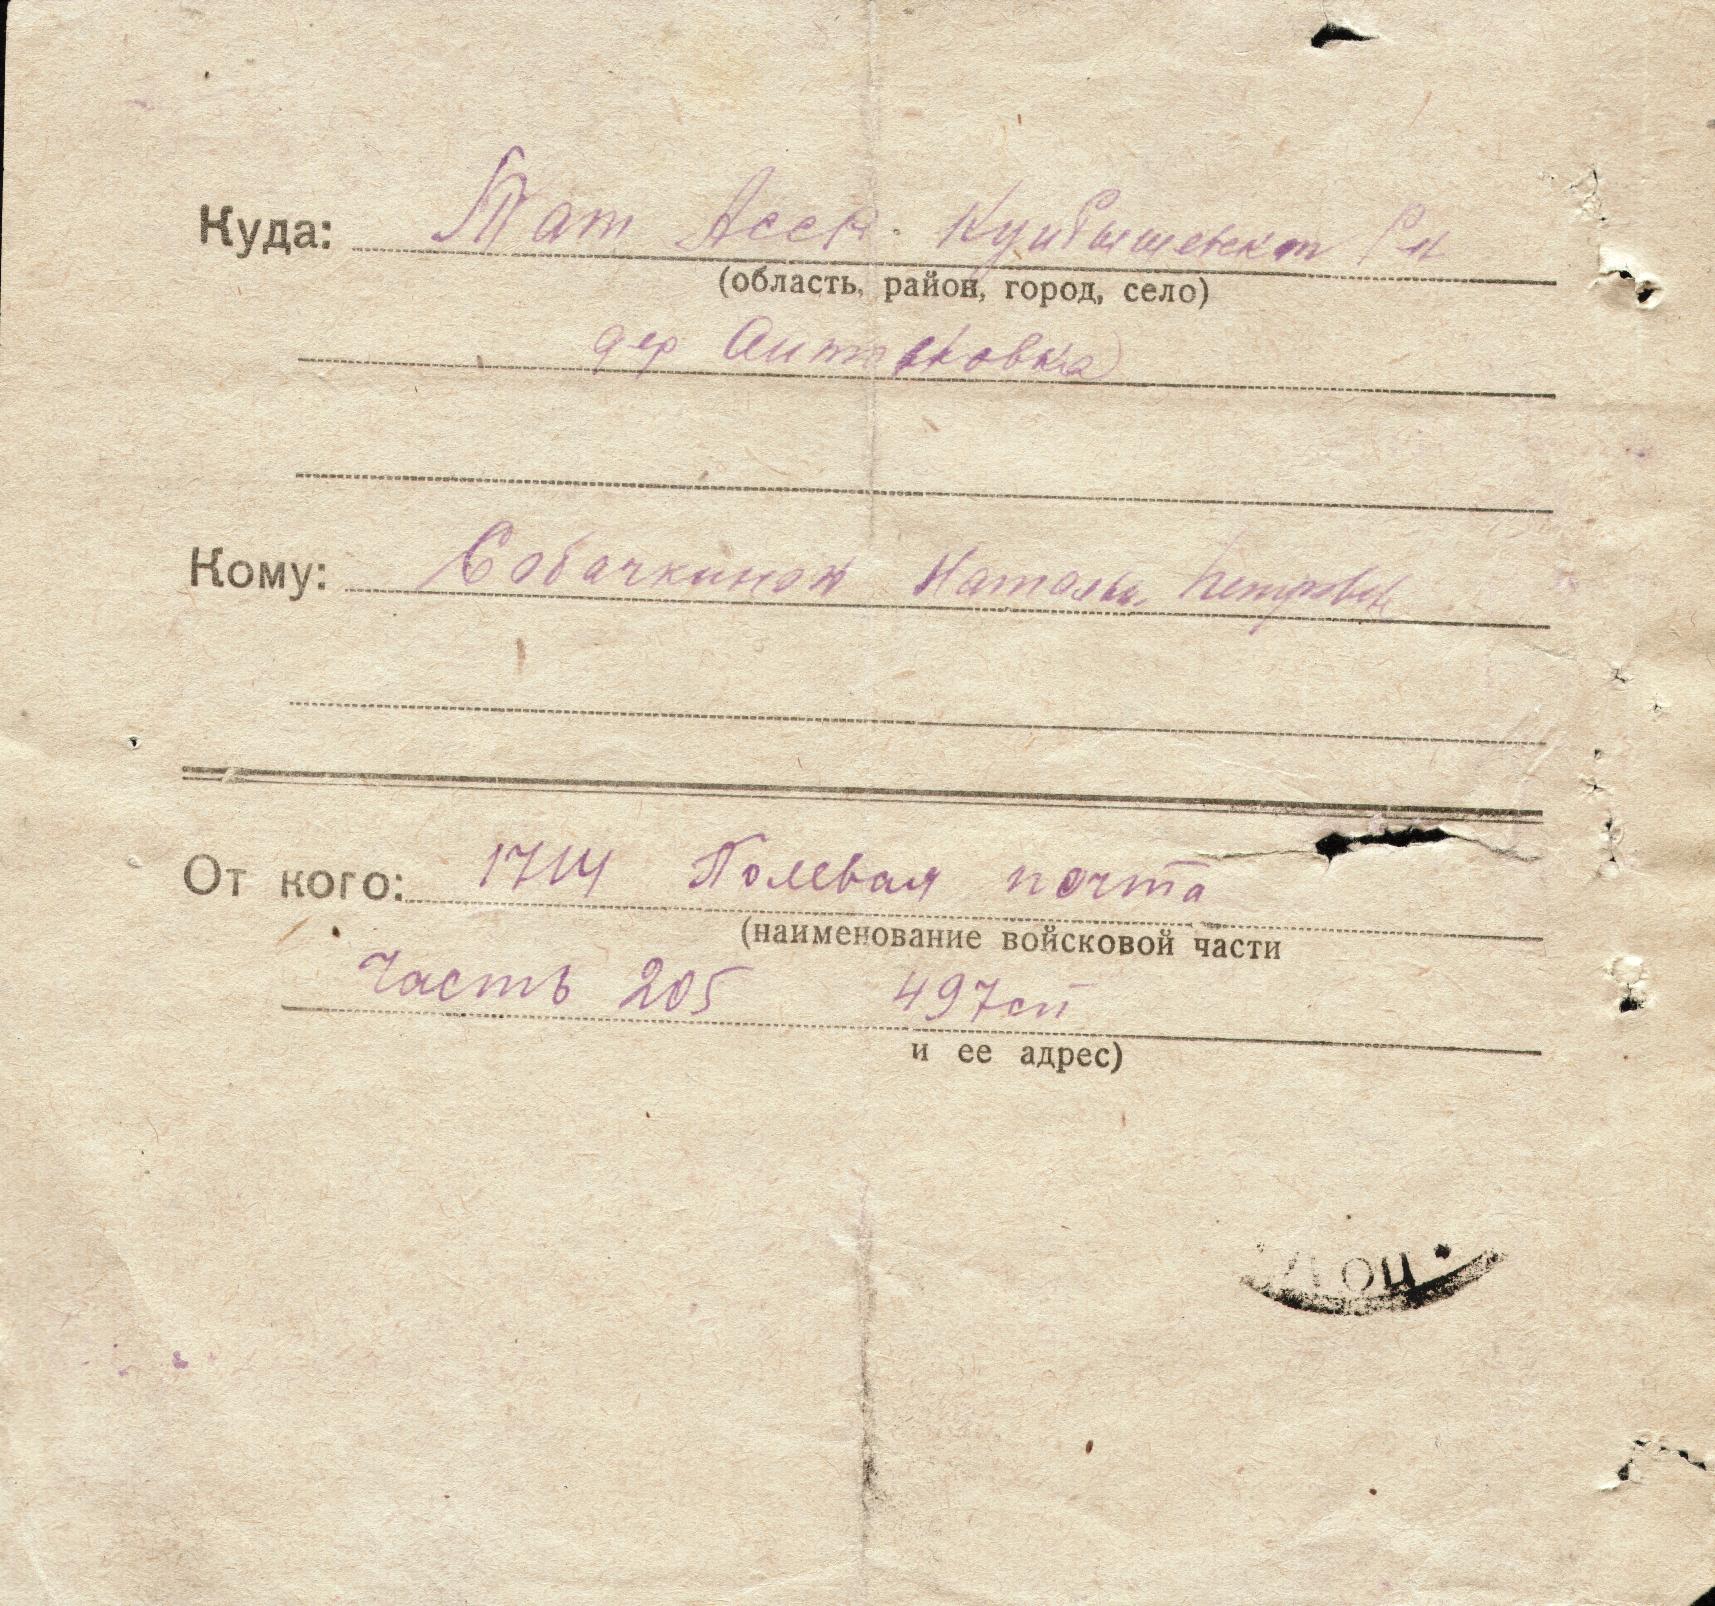 Куда: Тат Асср. Куибышевскот Рн
(область, район, город, село)
дер Антоковка
Кому: Собачкиной Наталы Петровн
От кого: 1714 Полевая почта
(наименование войсковой части
Часть 205 497сп
и ее адрес)